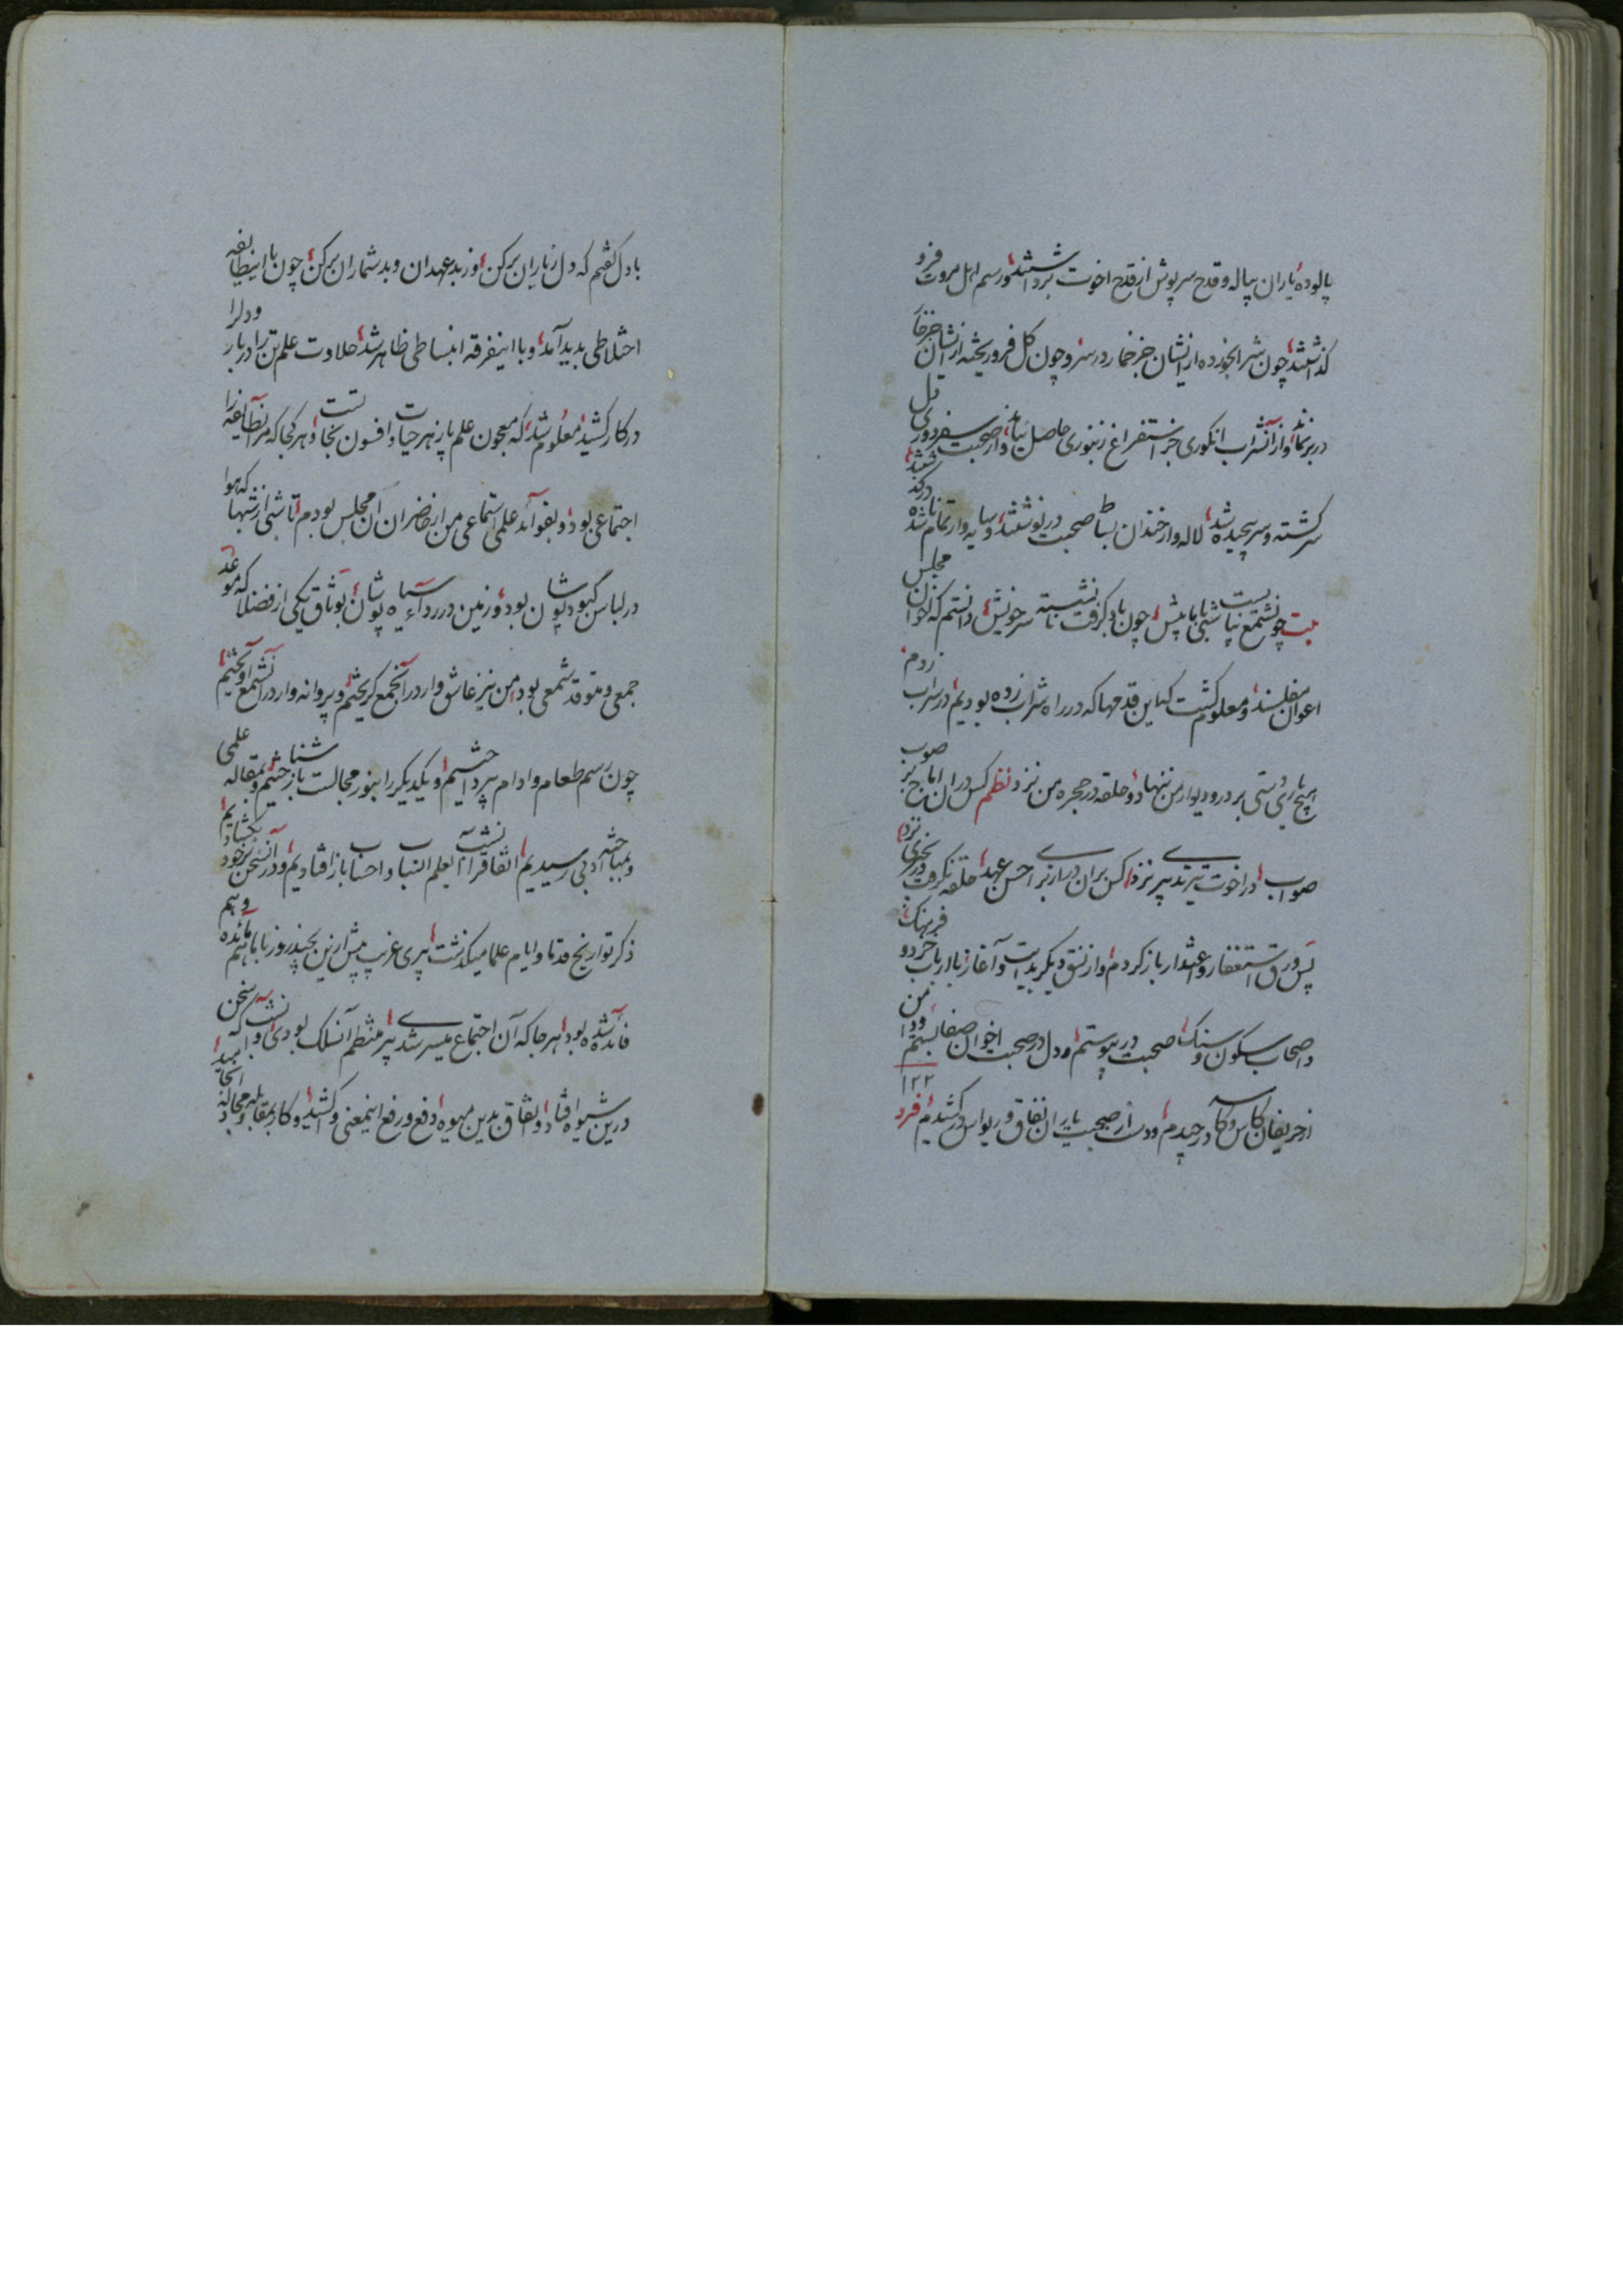 پالوده یاران پیاله و قدح سرپوش از قدح اخوت برداشتند و رسم اهل مروت فرو
گذاشتند چون شرابخورده از ایشان جز خمار در سر نه و چون گل فرو ریخته از ایشان جز خار
در بر نماند و از آن شراب انگوری جز استفراغ زنبوری حاصل نیامد و از صحبت سفر دوری
سرگشته و سر پیچیده شد لاله وار خندان بساط صحبت در نوشتند و سایه وار تمام ناشده در گذشتند
بیت چونشمع نیست شبی با پیش چون باد گرفت نانشسته سر خویش دانستم که اخوان مجلس
اعوان مفلسند و معلوم گشت که این قدمها که در راه شراب زده بودیم در سراب زدم
هیچ یاری دستی بر در و دیوار من ننهاد و حلقه در حجره من نزد نظم کس در آن اماج بر صوب
صواب در اخوت تیری تدبیری نزد کس بر آن در از برای حسن عهد حلقه نگرفت و زنجیری نزد
پس ورق استغفار و اعتذار باز کردم و از نسق دیگر بدایت و آغاز با ارباب خرد و فرهنگ
و اصحاب سکون و سنگ صحبت در پیوستم و دل در صحبت اخوان صفا بستم و دامن
از حریفان کاس و کاسه در چیدم و دست از صحبت یاران نفاق و ریو اس در کشیدم فرد
۱۲۲
با دل گفتم که دل ز یاران برکن وز بدعهدان و بدشماران برکن چون با اینطایفه
اختلاطی بدید آمد و با اینفرقه انبساطی ظاهر شد حلاوت علم تن را در بار و دل را
در کار کشید معلوم شد که معجون علم پازهر حیات و افسون نجاتست و هر کجا که مر آنطایفه را
اجتماعی بود و بفواید علمی استماعی من از حاضران آن مجلس بودم تا شبی از شبها که هوا
در لباس کبودپوشان بود و زمین در رداء سیاه پوشان بوثاق یکی از فضلا که موعد
جمعی و متوقد شمعی بود من نیز عاشق وار در آنجمع گریختم و پروانه وار در آنشمع آویختم
چون رسم طعام و ادام بپرداختیم و یکدیگر را بنور مجالست باز شناختیم و بمقاله علمی
و بمباحثه ادبی رسیدیم اتفاقرا بعلم انساب و احساب باز افتادیم و در آن سخن بر خود بگشادیم
ذکر تواریخ قدما و ایام علما میگذشت پیری غریب پیش ازین بچند روز با ما هم مائده و هم
فائده شده بود هر جا که آن اجتماع میسر شدی پیر منتظم آن سلک بودی و آنشب که سخن
درین شیوه افتاد و اتفاق بدین میوه دفع و رفع اینمعنی واکشید و کار بمقابله و مجادله انجامید